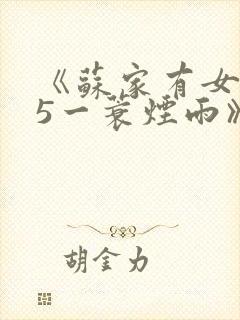 《蘇家有女
5一蓑煙雨》
胡金力